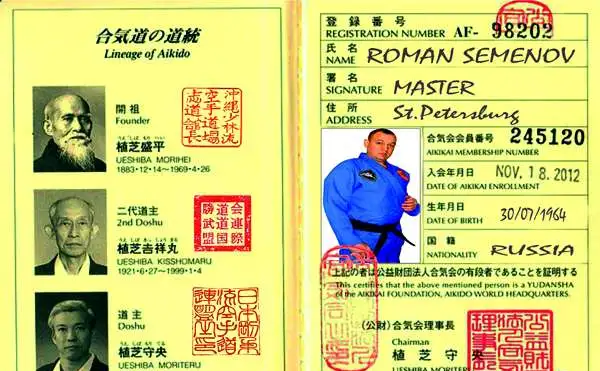 合気道の道統
Lineage of Aikido
開祖
Founder
うえしば もりへい
植芝盛平
UESHIBA MORIHEI
1883・12・14〜1969・4・26
沖縄少林流
空手道場
志道部長
二代道主
2nd Doshu
うえしば きっしょまる
植芝吉祥丸
UESHIBA KISSHOMARU
1921・6・27〜1999・1・4
道主
Doshu
うえしば もりてる
植芝守央
UESHIBA MORITERU
登録番号
REGISTRATION NUMBER AF- 98202
氏名
NAME ROMAN SEMENOV
署名
SIGNATURE MASTER
住所
ADDRESS St.Petersburg
合気会会員番号 245120
AIKIKAI MEMBERSHIP NUMBER
入会年月日 NOV, 1 8. 2012
DATE OF AIKIKAI ENROLLMENT
生年月日 30/07/1964
DATE OF BIRTH
国籍 RUSSIA
NATIONALITY
上記の者は公益財団法人合気会の有段者であることを証明する
This certifies that the above mentioned person is a YUDANSHA
of the AIKIKAI FOUNDATION, AIKIDO WORLD HEADQUARTERS.
(公財)合気会理事長
Chairman
植芝守央
UESHIBA MORITERU